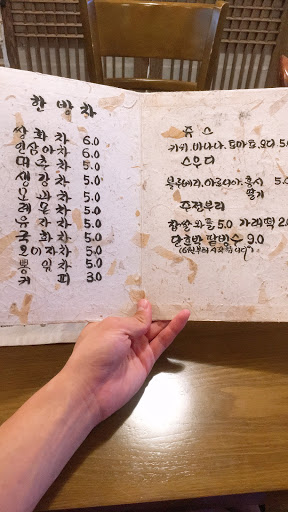 한방차
쌍화차 6.0
인삼차 6.0
대추차 5.0
생강차 5.0
차 5.0
차 5.0
유자차 5.0
국화차 5.0
오미자차 5.0
뽕잎차 5.0
커피 3.0
쥬스
키위,바나나,토마토,오디 5.0
스무디
블루베리,아로니아,홍시 5.0
딸기
주전부리
찹쌀와플 5.0 가래떡 2.0
단호박 팥빙수 9.0
(6월부터 시작합니다)